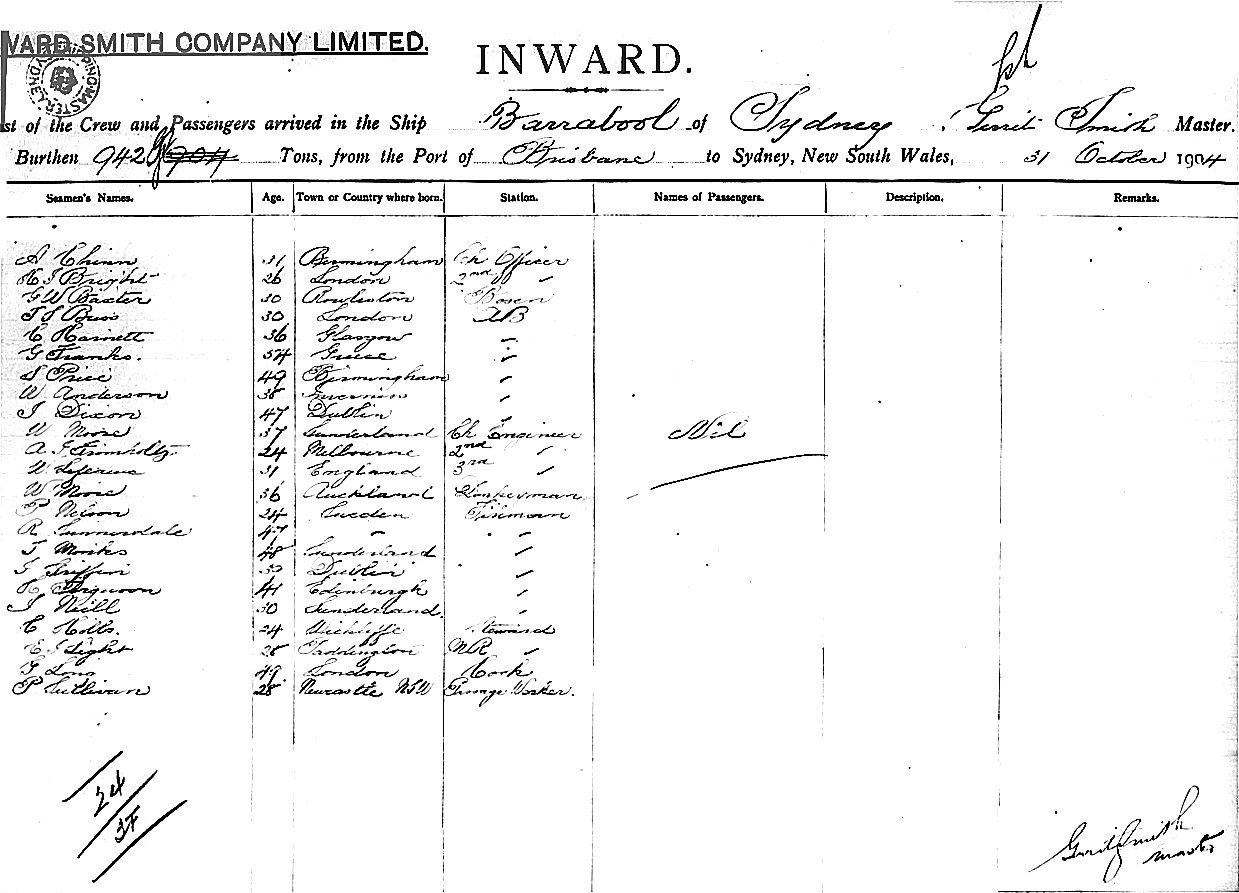 WARD SMITH COMPANY LIMITED.
INWARD.
st of the Crew and Passengers arrived in the Ship Barrabool of Sydney, Gerrit Smith Master.
Burthen 942 904 Tons, from the Port of Brisbane to Sydney, New South Wales, 31 October 1904
Seamen's Names. Age. Town or Country where born. Station. Names of Passengers. Description. Remarks.
A Chinn 31 Birmingham Ch Officer
H J Bright 26 London 2nd "
G W Baxter 30 Rowleston Bosen
30 London AB
C Harnett 36 Glasgow "
G Franks. 54 Greece "
S Price 49 Birmingham "
W Anderson 38 Inverness "
J Dixon 47 Dublin "
W Moore 37 Sunderland Ch Engineer Nil
24 Melbourne 2nd "
W 31 England 3rd "
W Moore 36 Auckland Donkeyman
P Nelson 24 Sweden Fireman
R Sunnerdale 47 " "
T Monks 48 Sunderland "
Griffin Dublin "
H Ferguson 41 Edinburgh "
J Neill 30 Sunderland. "
C Holls. 24 Steward
E J Light 28 Paddington "
F Long 49 London Cook
P Sullivan 28 Newcastle NSW
24
37
Gerrit Smith
Master